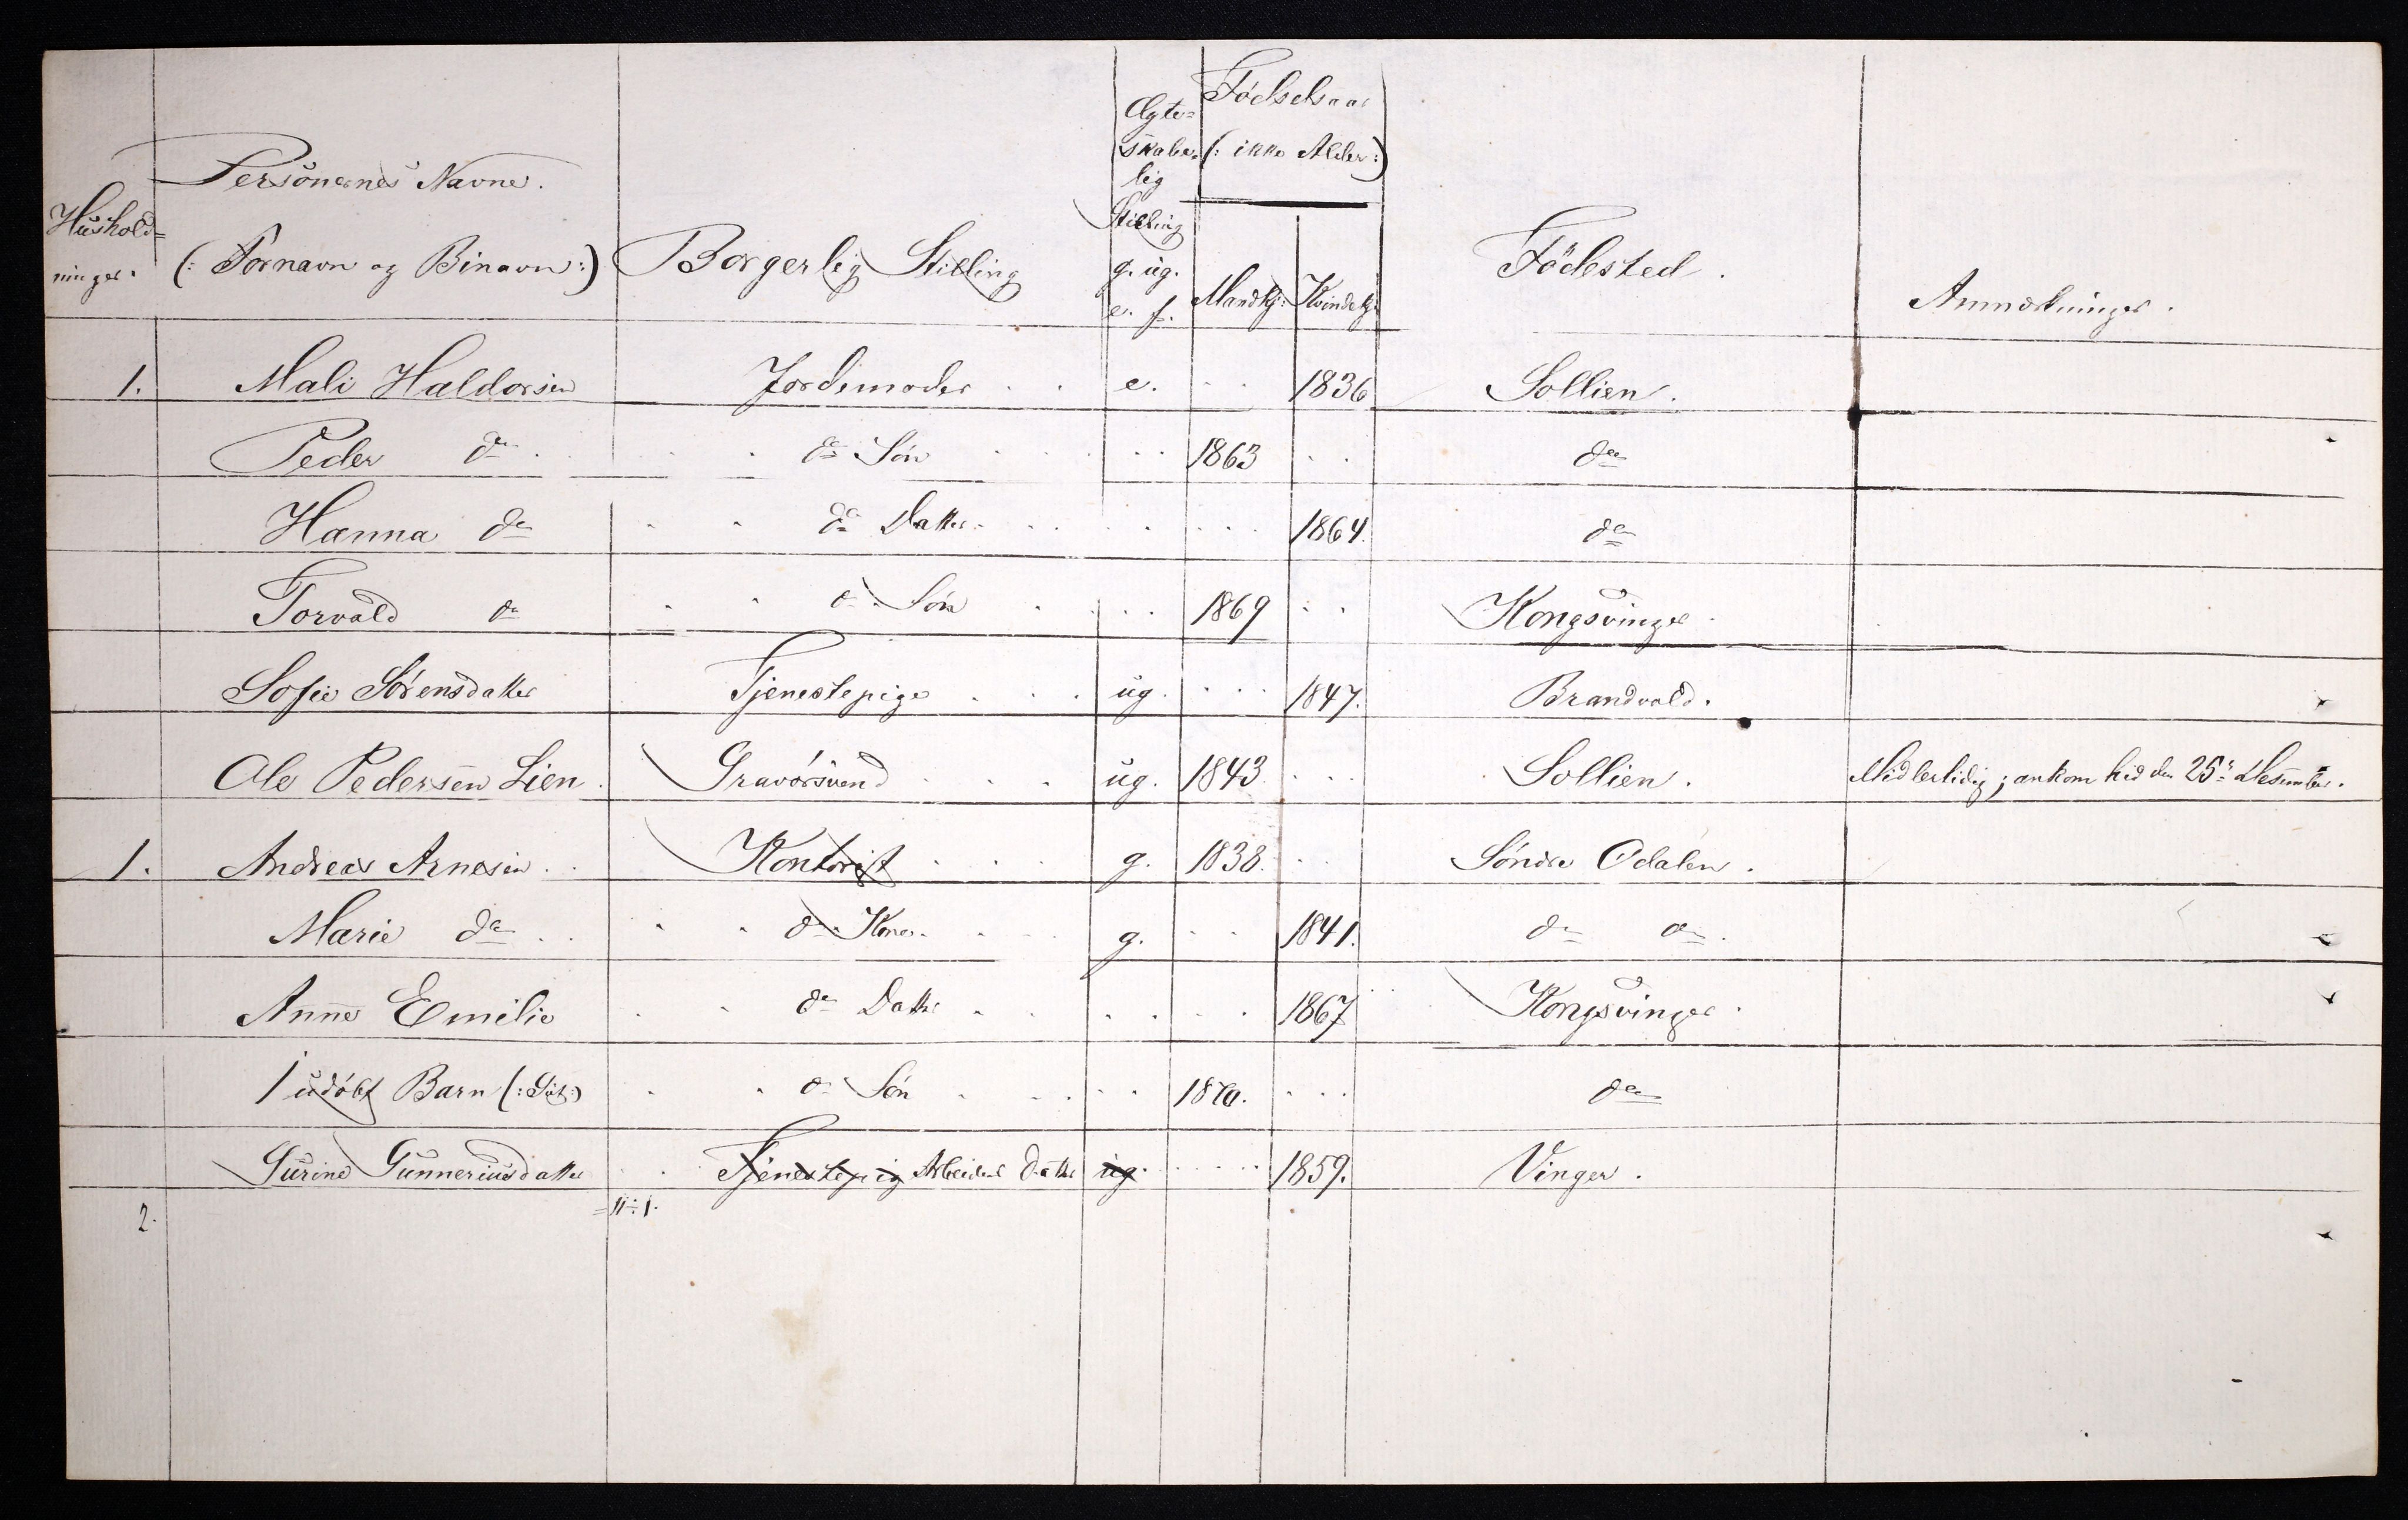 Hushold=
ninger.
Personernes Navne.
(: Fornavn og Binavn :)
Borgerlig Stilling
Ægte=
skabe=
lig
Stilling
g. ug.
e. f.
Fødselsaar
(: ikke Alder :)
Mandkj: Kvindekj:
Fødested.
Anmærkninger.
1. Mali Haldorsen Jordemoder e. 1836 Sollien.
Peder do do Søn 1863 do
Hanna do do Datter 1864. do
Torvald do do Søn 1869 Kongsvinger
Sofie Sørensdatter Tjenestepige ug. 1847. Brandvold.
Ole Pedersen Lien. Gravørsvend ug. 1843. Sollien. Midlertidig; ankom hid den 25: Desember.
1. Andreas Arnesen Kontorist g. 1838. Søndre Odalen.
Marie do do Kone g. 1841. do do
Anne Emilie do Datter 1867 Kongsvinger
1 udøbt Barn do Søn 1870. do
Gunneriusdatter Tjenestepig Arbeider Datter ug. 1859. Vinger.
2. = 11 ÷ 1.